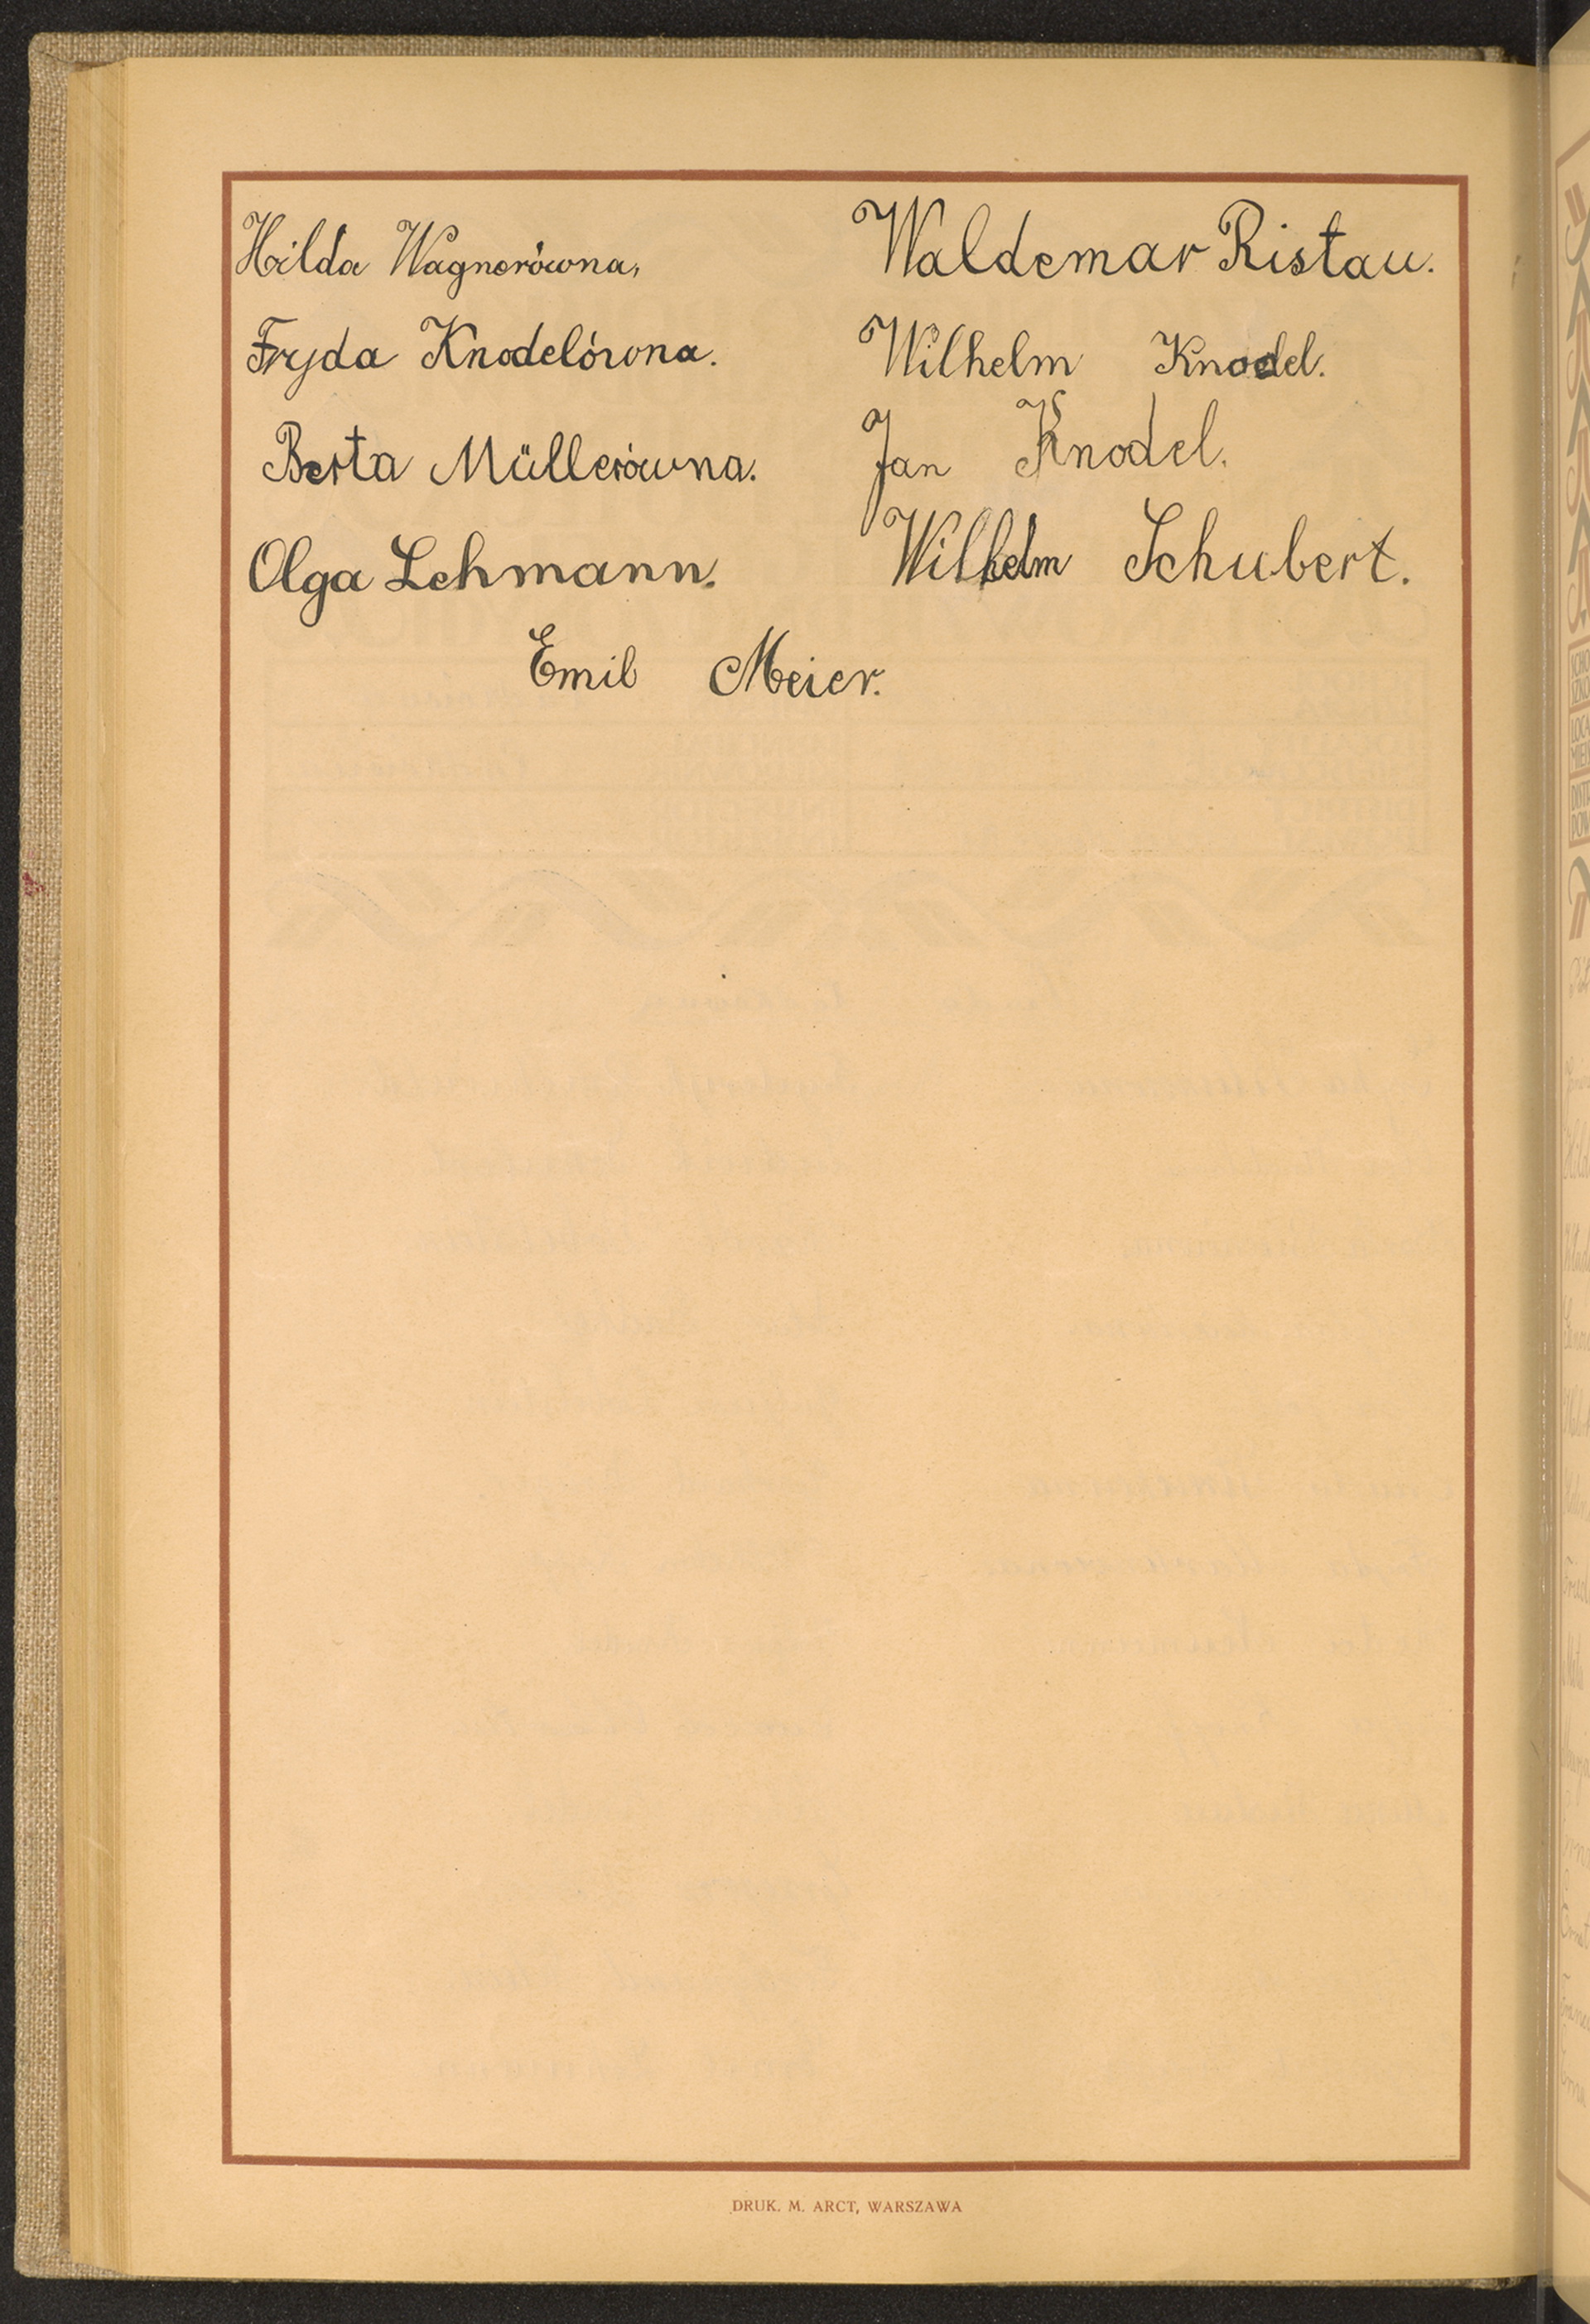 Hilda Wagnerówna,
Fryda Knodelówna.
Berta Müllerówna.
Olga Lehmann.
Waldemar Ristau.
Wilhelm Knodel.
Jan Knodel.
Wilhelm Schubert.
Emil Meier.
DRUK. M. ARCT, WARSZAWA